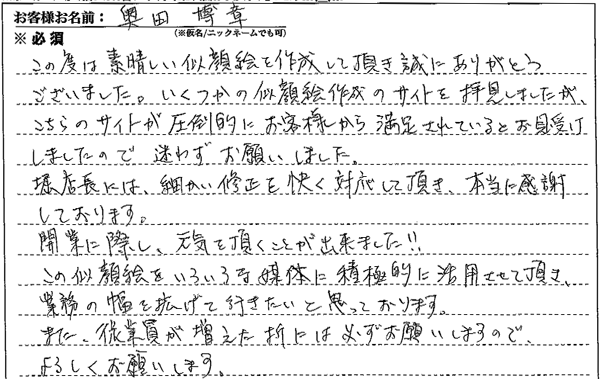 お客様お名前： 奥田 博章
※必須 (※仮名/ニックネームでも可)
この度は素晴しい似顔絵を作成して頂き誠にありがとう
ございました。いくつかの似顔絵作成のサイトを拝見しましたが、
こちらのサイトが圧倒的にお客様から満足されているとお見受け
しましたので迷わずお願いしました。
堀店長には、細かい修正を快く対応して頂き、本当に感謝
しております。
開業に際し、元気を頂くことが出来ました!!
この似顔絵をいろいろな媒体に積極的に活用させて頂き、
業務の幅を拡げて行きたいと思っております。
また、従業員が増えた折には必ずお願いしまるので、
よろしくお願いします。